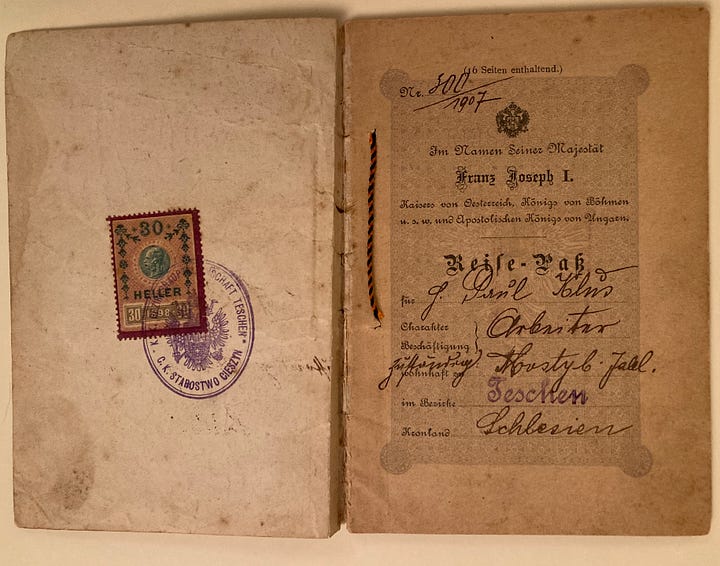 30
HELLER
30 1898
SCHAFT TESCHEN * C. K. STAROSTWO CIESZYN
(16 Seiten enthaltend.)
Nr. 300/1907
Im Namen Seiner Majestät
Franz Joseph I.
Kaisers von Oesterreich, Königs von Böhmen
u. s. w. und Apostolischen Königs von Ungarn.
Reise-Paß
für H. Paul Klus
Charakter
Beschäftigung } Arbeiter
zuständig
wohnhaft zu Mosty b. Jabl.
im Bezirke Teschen
Kronland Schlesien